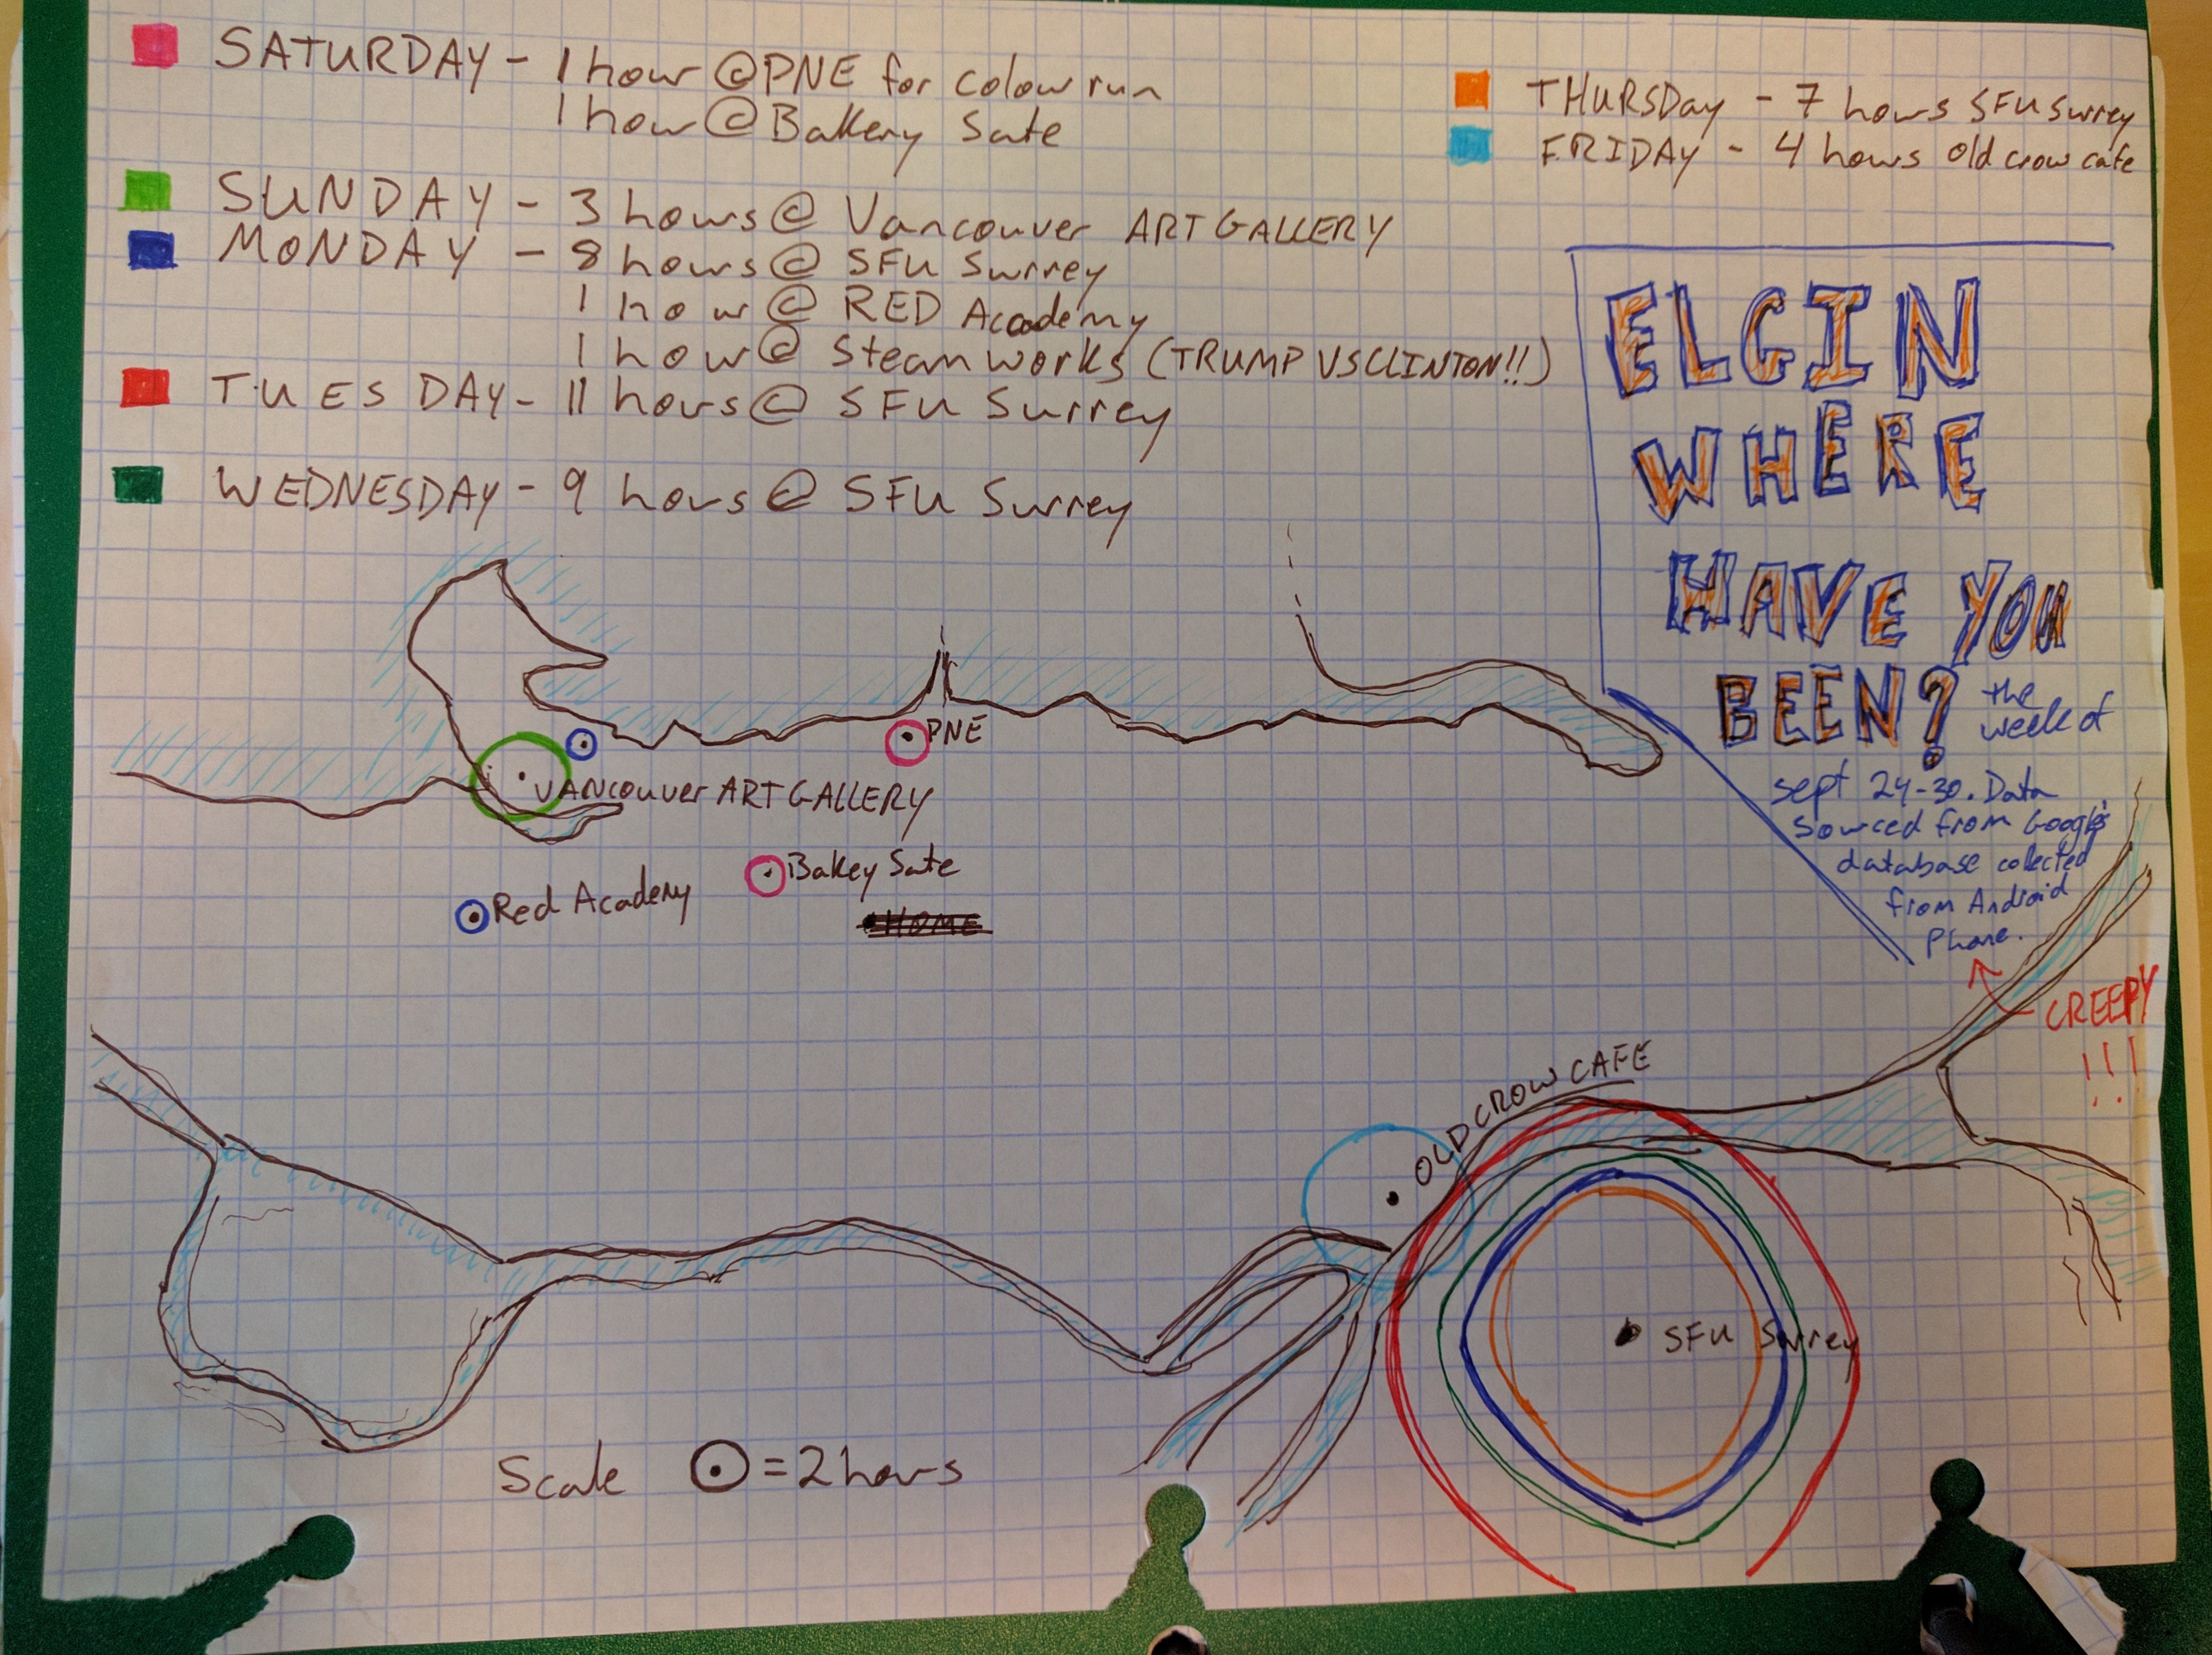 SATURDAY - 1 hour @ PNE for colour run
1 hour @ Bakery Sate
SUNDAY - 3 hours @ Vancouver ART GALLERY
MONDAY - 8 hours @ SFU Surrey
1 hour @ RED Academy
1 hour @ Steamworks (TRUMP VS CLINTON!!)
TUESDAY - 11 hours @ SFU Surrey
WEDNESDAY - 9 hours @ SFU Surrey
THURSDay - 7 hours SFU Surrey
FRIDAY - 4 hours old crow cafe
ELGIN
WHERE
HAVE YOU
BEEN? the
week of
sept 24-30. Data
sourced from Google's
database collected
from Android
Phone.
CREEPY
!!!
PNE
VANcouver ART GALLERY
Bakey Sate
Red Academy
HOME
OLD CROW CAFE
SFU Surrey
Scale = 2 hours